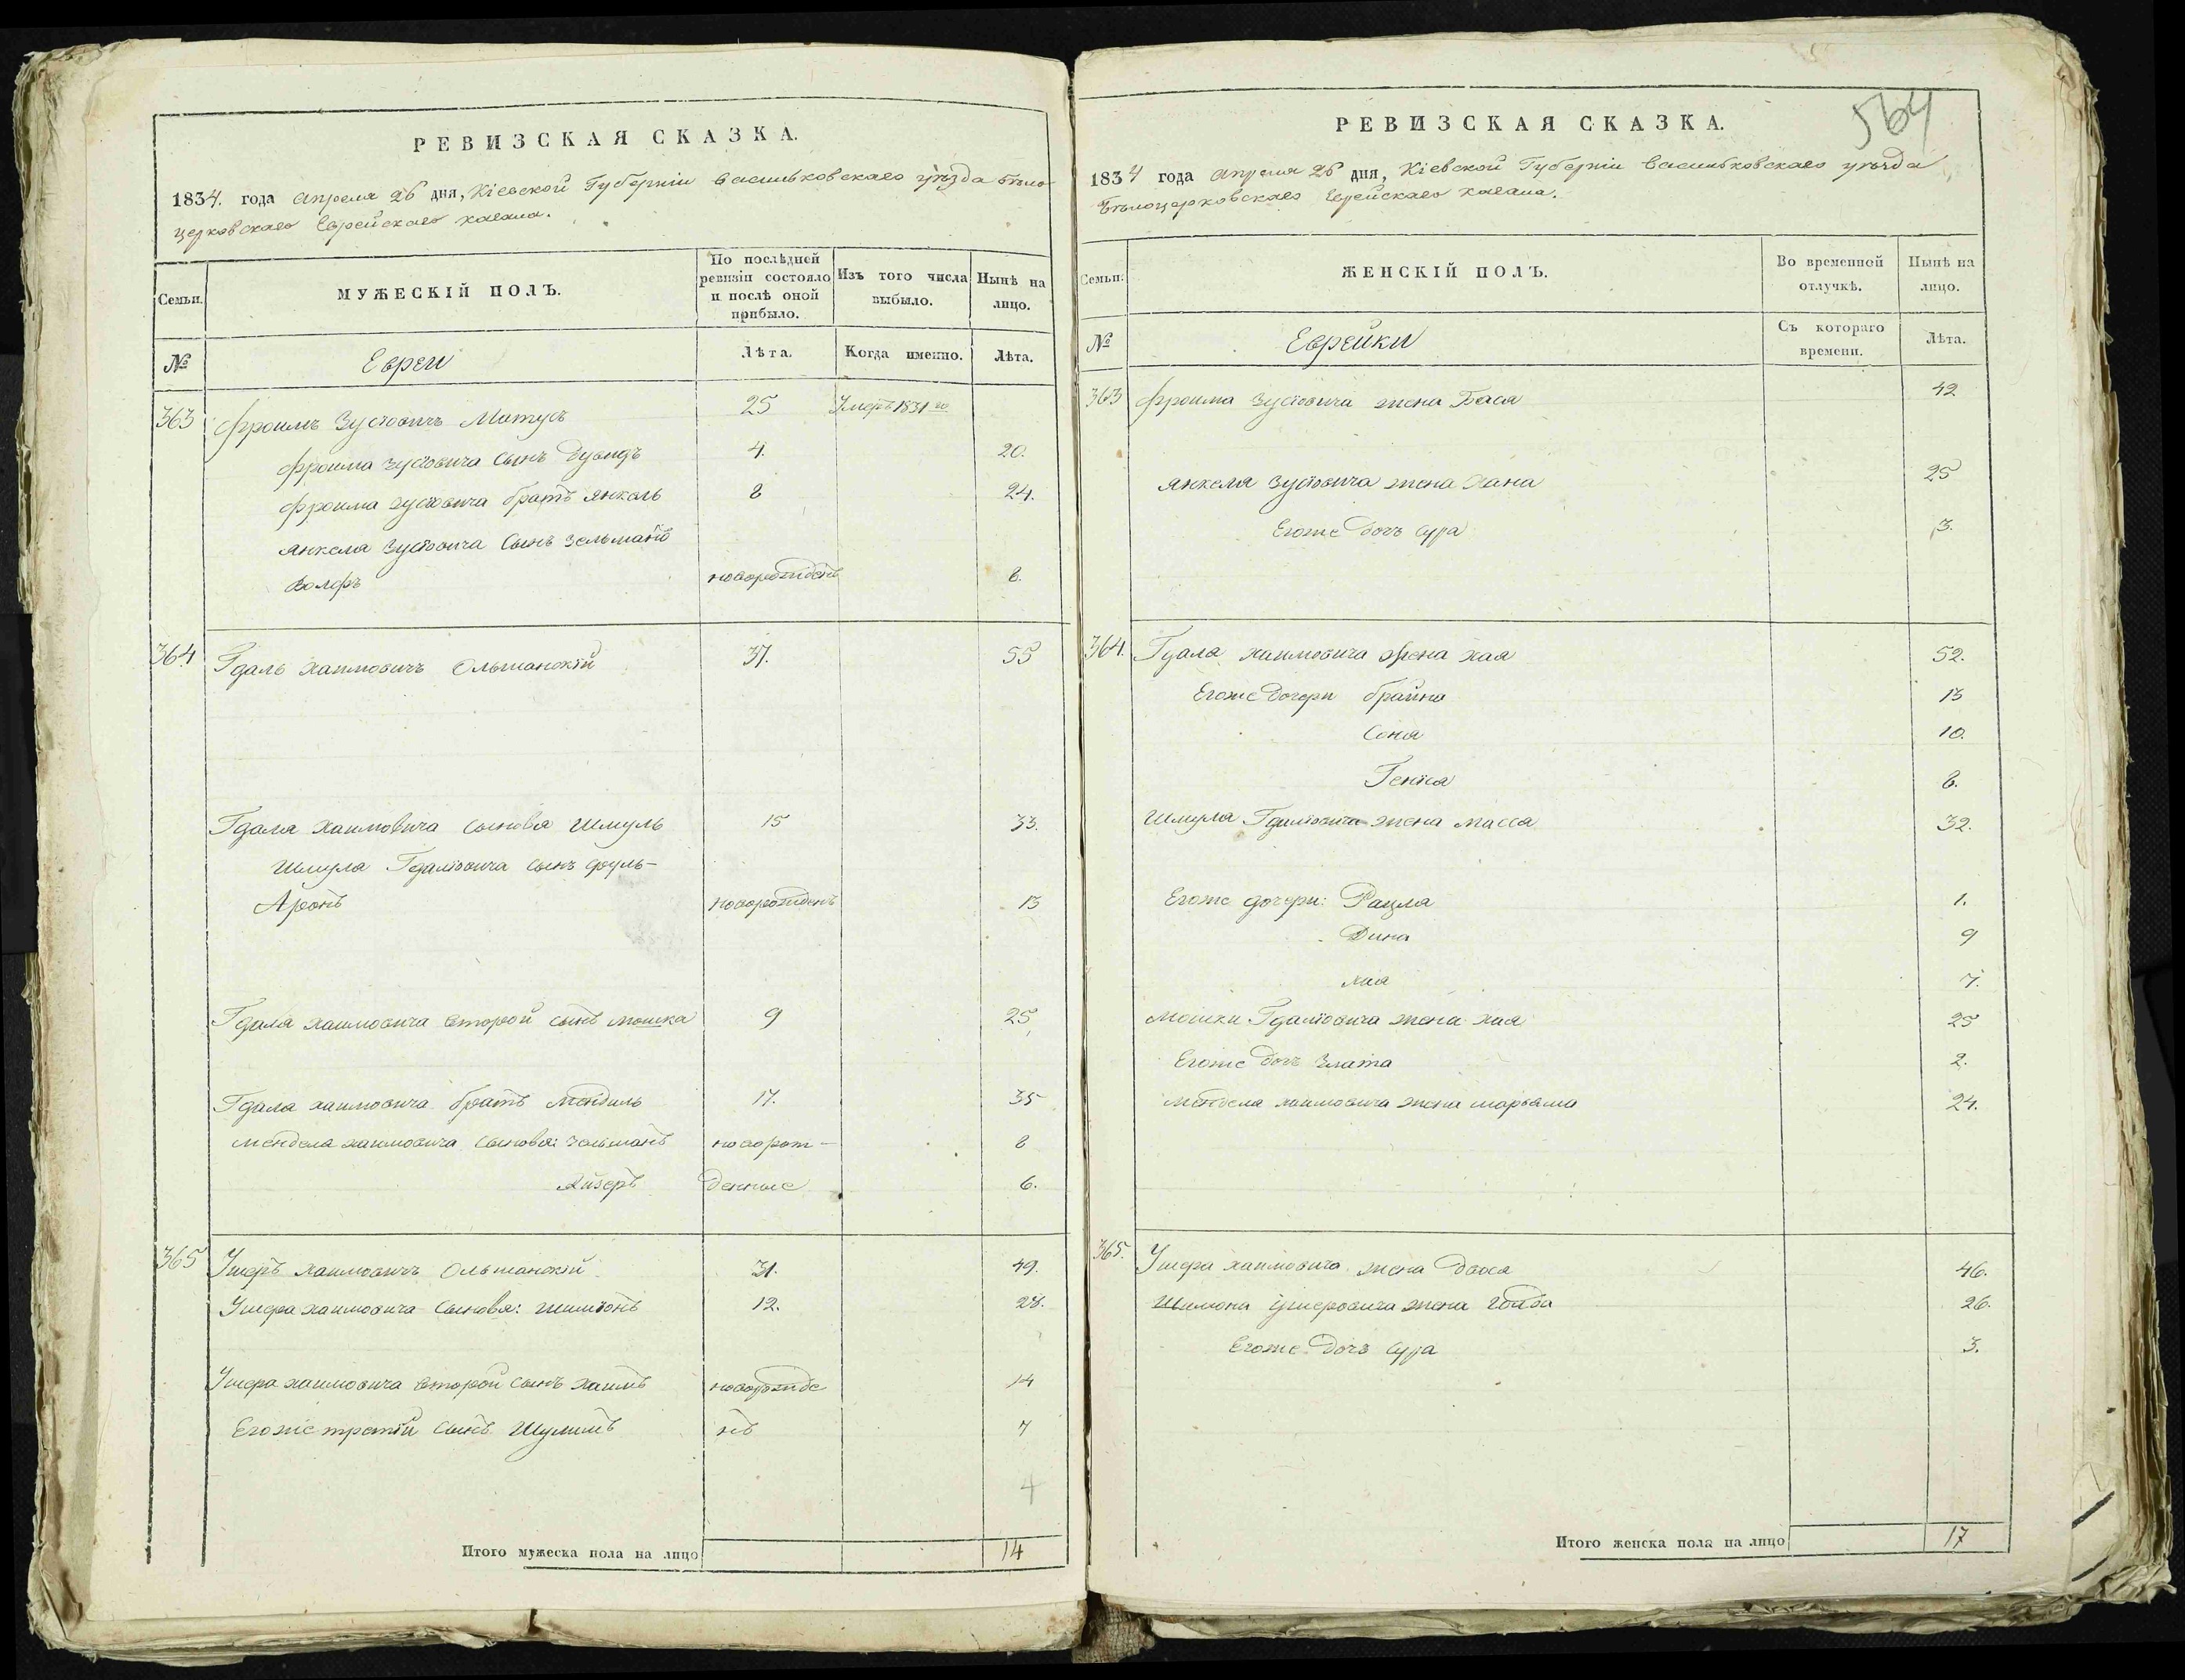 РЕВИЗСКАЯ СКАЗКА.
1834. года Апреля 26 дня, Кіевской Губерніи Васильковскаго уѣзда Бѣло
церковскаго Еврейскаго кагала.
Семьи. МУЖЕСКІЙ ПОЛЪ. По послѣдней ревизіи состояло и послѣ оной прибыло. Изъ того числа выбыло. Нынѣ на лицо.
№ Евреи Лѣта. Когда именно. Лѣта.
363 Фроимъ Зусіовичъ Матусъ 25 Умеръ 1831 го
Фроима Зусіовича сынъ Дувидъ 4. 20.
Фроима Зусіовича братъ Янкель 8 24.
Янкеля Зусіовича сынъ Зельманъ
Волфъ новорожденъ 8.
364 Гдаль Хаимовичъ Ольшанскій 37. 55
Гдаля Хаимовича сыновья Шмуль 15 33.
Шмуля Гдаліовича сынъ Сруль-
Аронъ новорожденъ 13
Гдаля Хаимовича второй сынъ Мошка 9 25
Гдаля Хаимовича братъ Мендиль 17. 35
Мендела Хаимовича сыновья: Зельманъ новорож- 8
Лйзеръ денные 6.
365 Ушеръ Хаимовичъ Ольшанскій 31. 49.
Ушера Хаимовича сыновья: Шиміонъ 12. 28.
Ушера Хаимовича второй сынъ Хаимъ новорожде 14
Егоже третій сынъ Шулимъ нъ 7
4
Итого мужеска пола на лицо 14
564
РЕВИЗСКАЯ СКАЗКА.
1834 года Апреля 26 дня, Кіевской Губерніи Васильковскаго уѣзда
Бѣлоцерковскаго Еврейскаго кагала.
Семьи. ЖЕНСКІЙ ПОЛЪ. Во временной отлучкѣ. Нынѣ на лицо.
№ Еврейки Съ котораго времени. Лѣта.
363 Фроима Зусіовича жена Бася 42
Янкеля Зусіовича жена Хана 25
Егоже дочь Сура 3.
364. Гдаля Хаимовича жена Хая 52.
Егоже дочери Брайна 13
Соня 10.
Генїа 8.
Шмуля Гдаліовича жена Масса 32.
Егоже дочери: Рацля 1.
Дина 9
7.
Мошки Гдаліовича жена Хая 25
Егоже дочь Злата 2.
Мендела Хаимовича жена Марьяма 24.
365. Ушера Хаимовича жена Двося 46.
Шимона Ушеровича жена Голда 26.
Егоже дочь Сура 3.
Итого женска пола на лицо 17